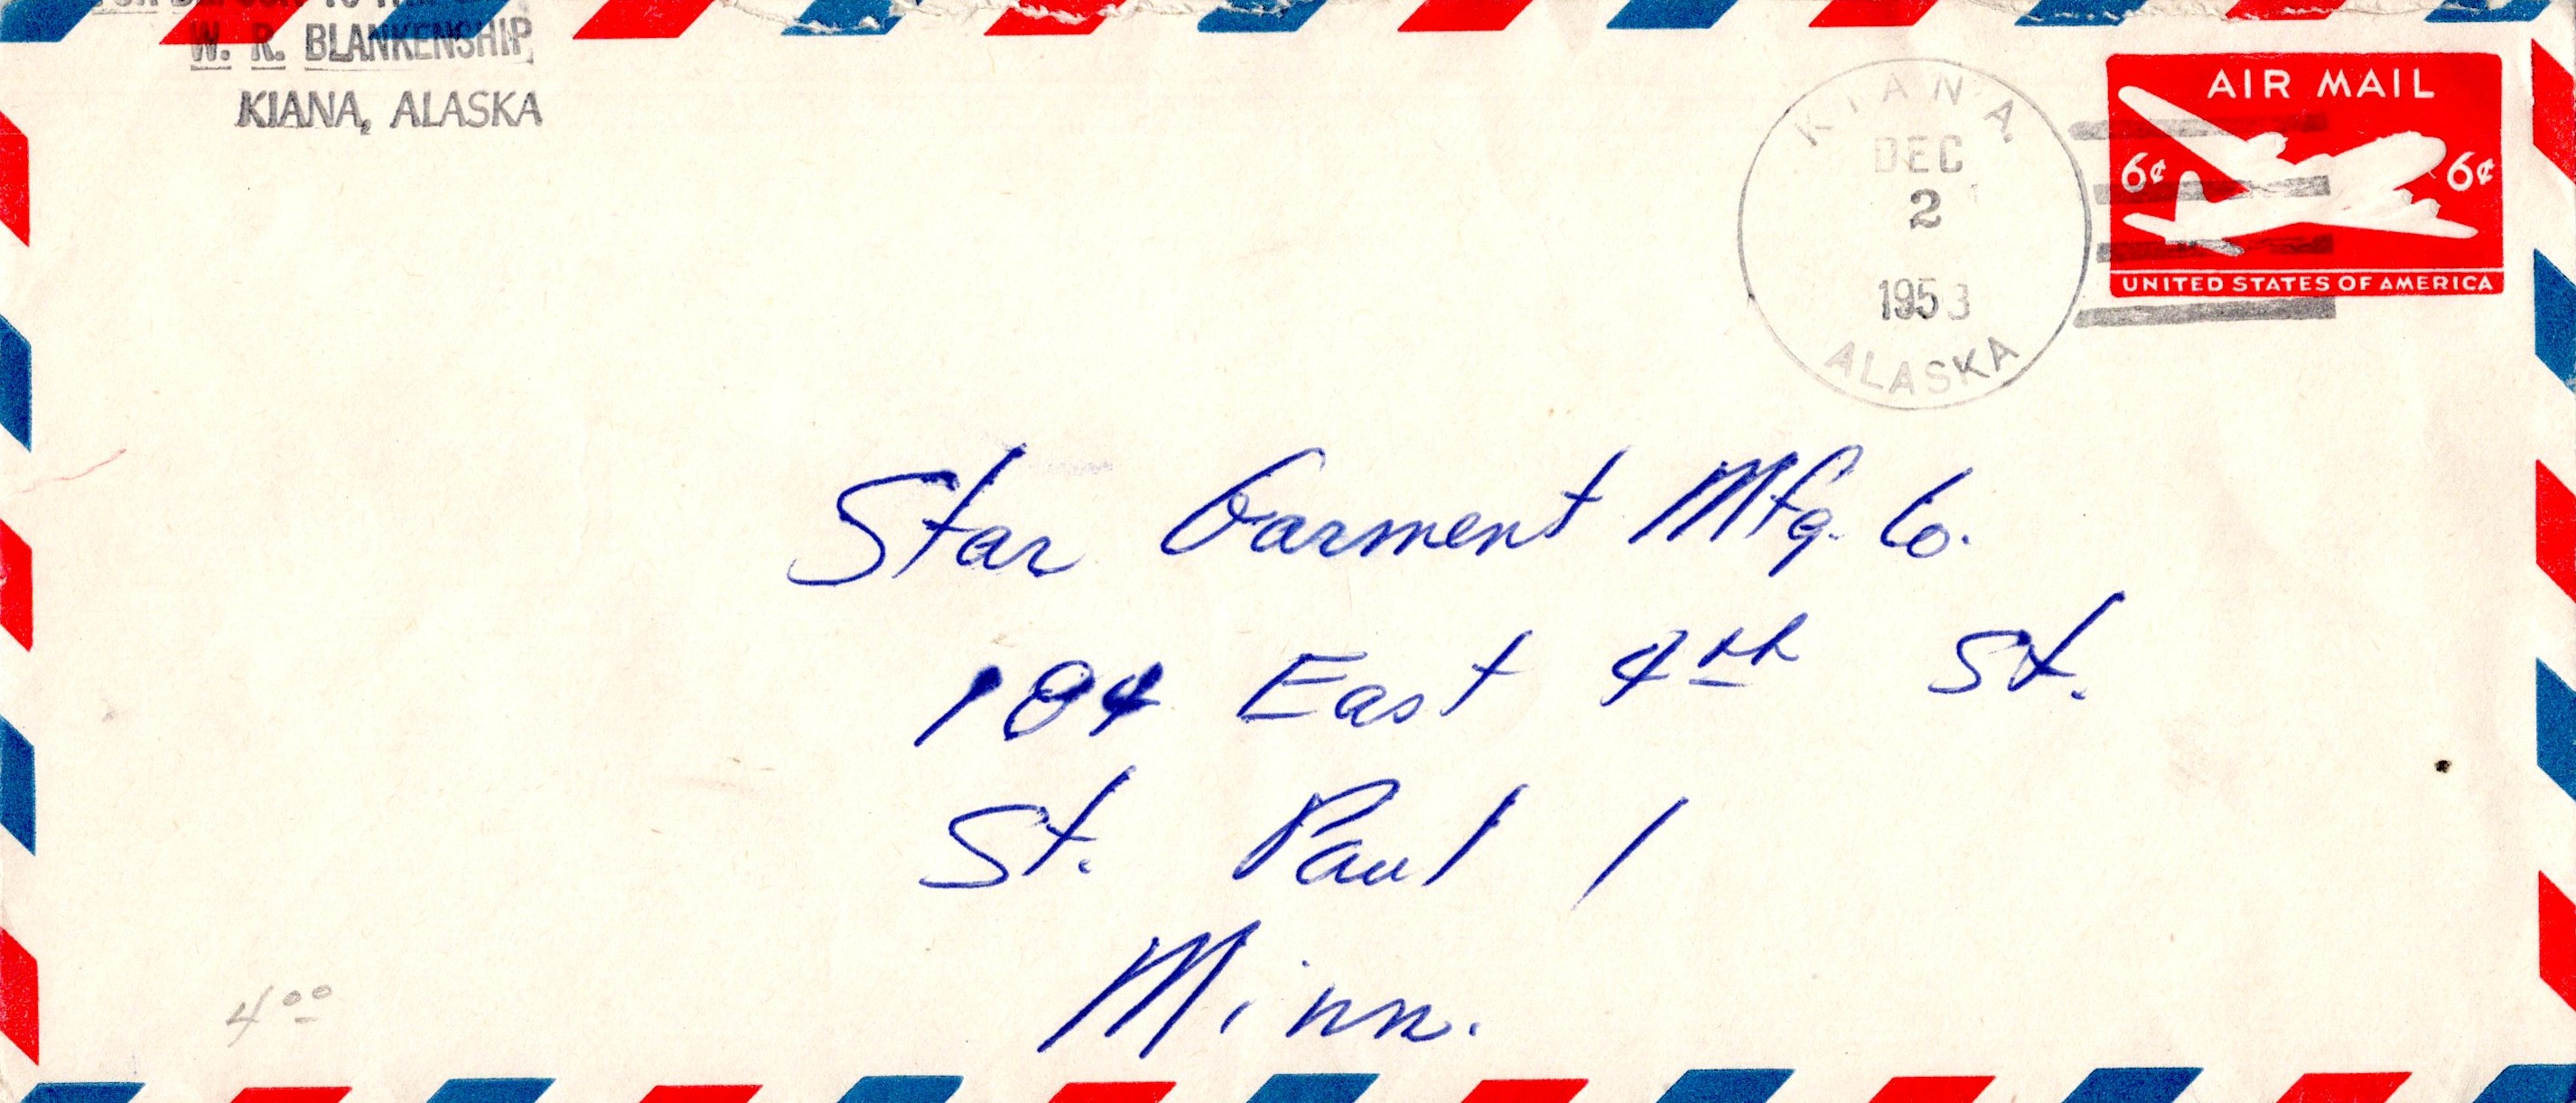 W. R. BLANKENSHIP,
KIANA, ALASKA
KIANA.
DEC
2
1953
ALASKA
AIR MAIL
6¢ 6¢
UNITED STATES OF AMERICA
Star Garment Mfg. Co.
184 East 4th St.
St. Paul 1
Minn.
4⁰⁰